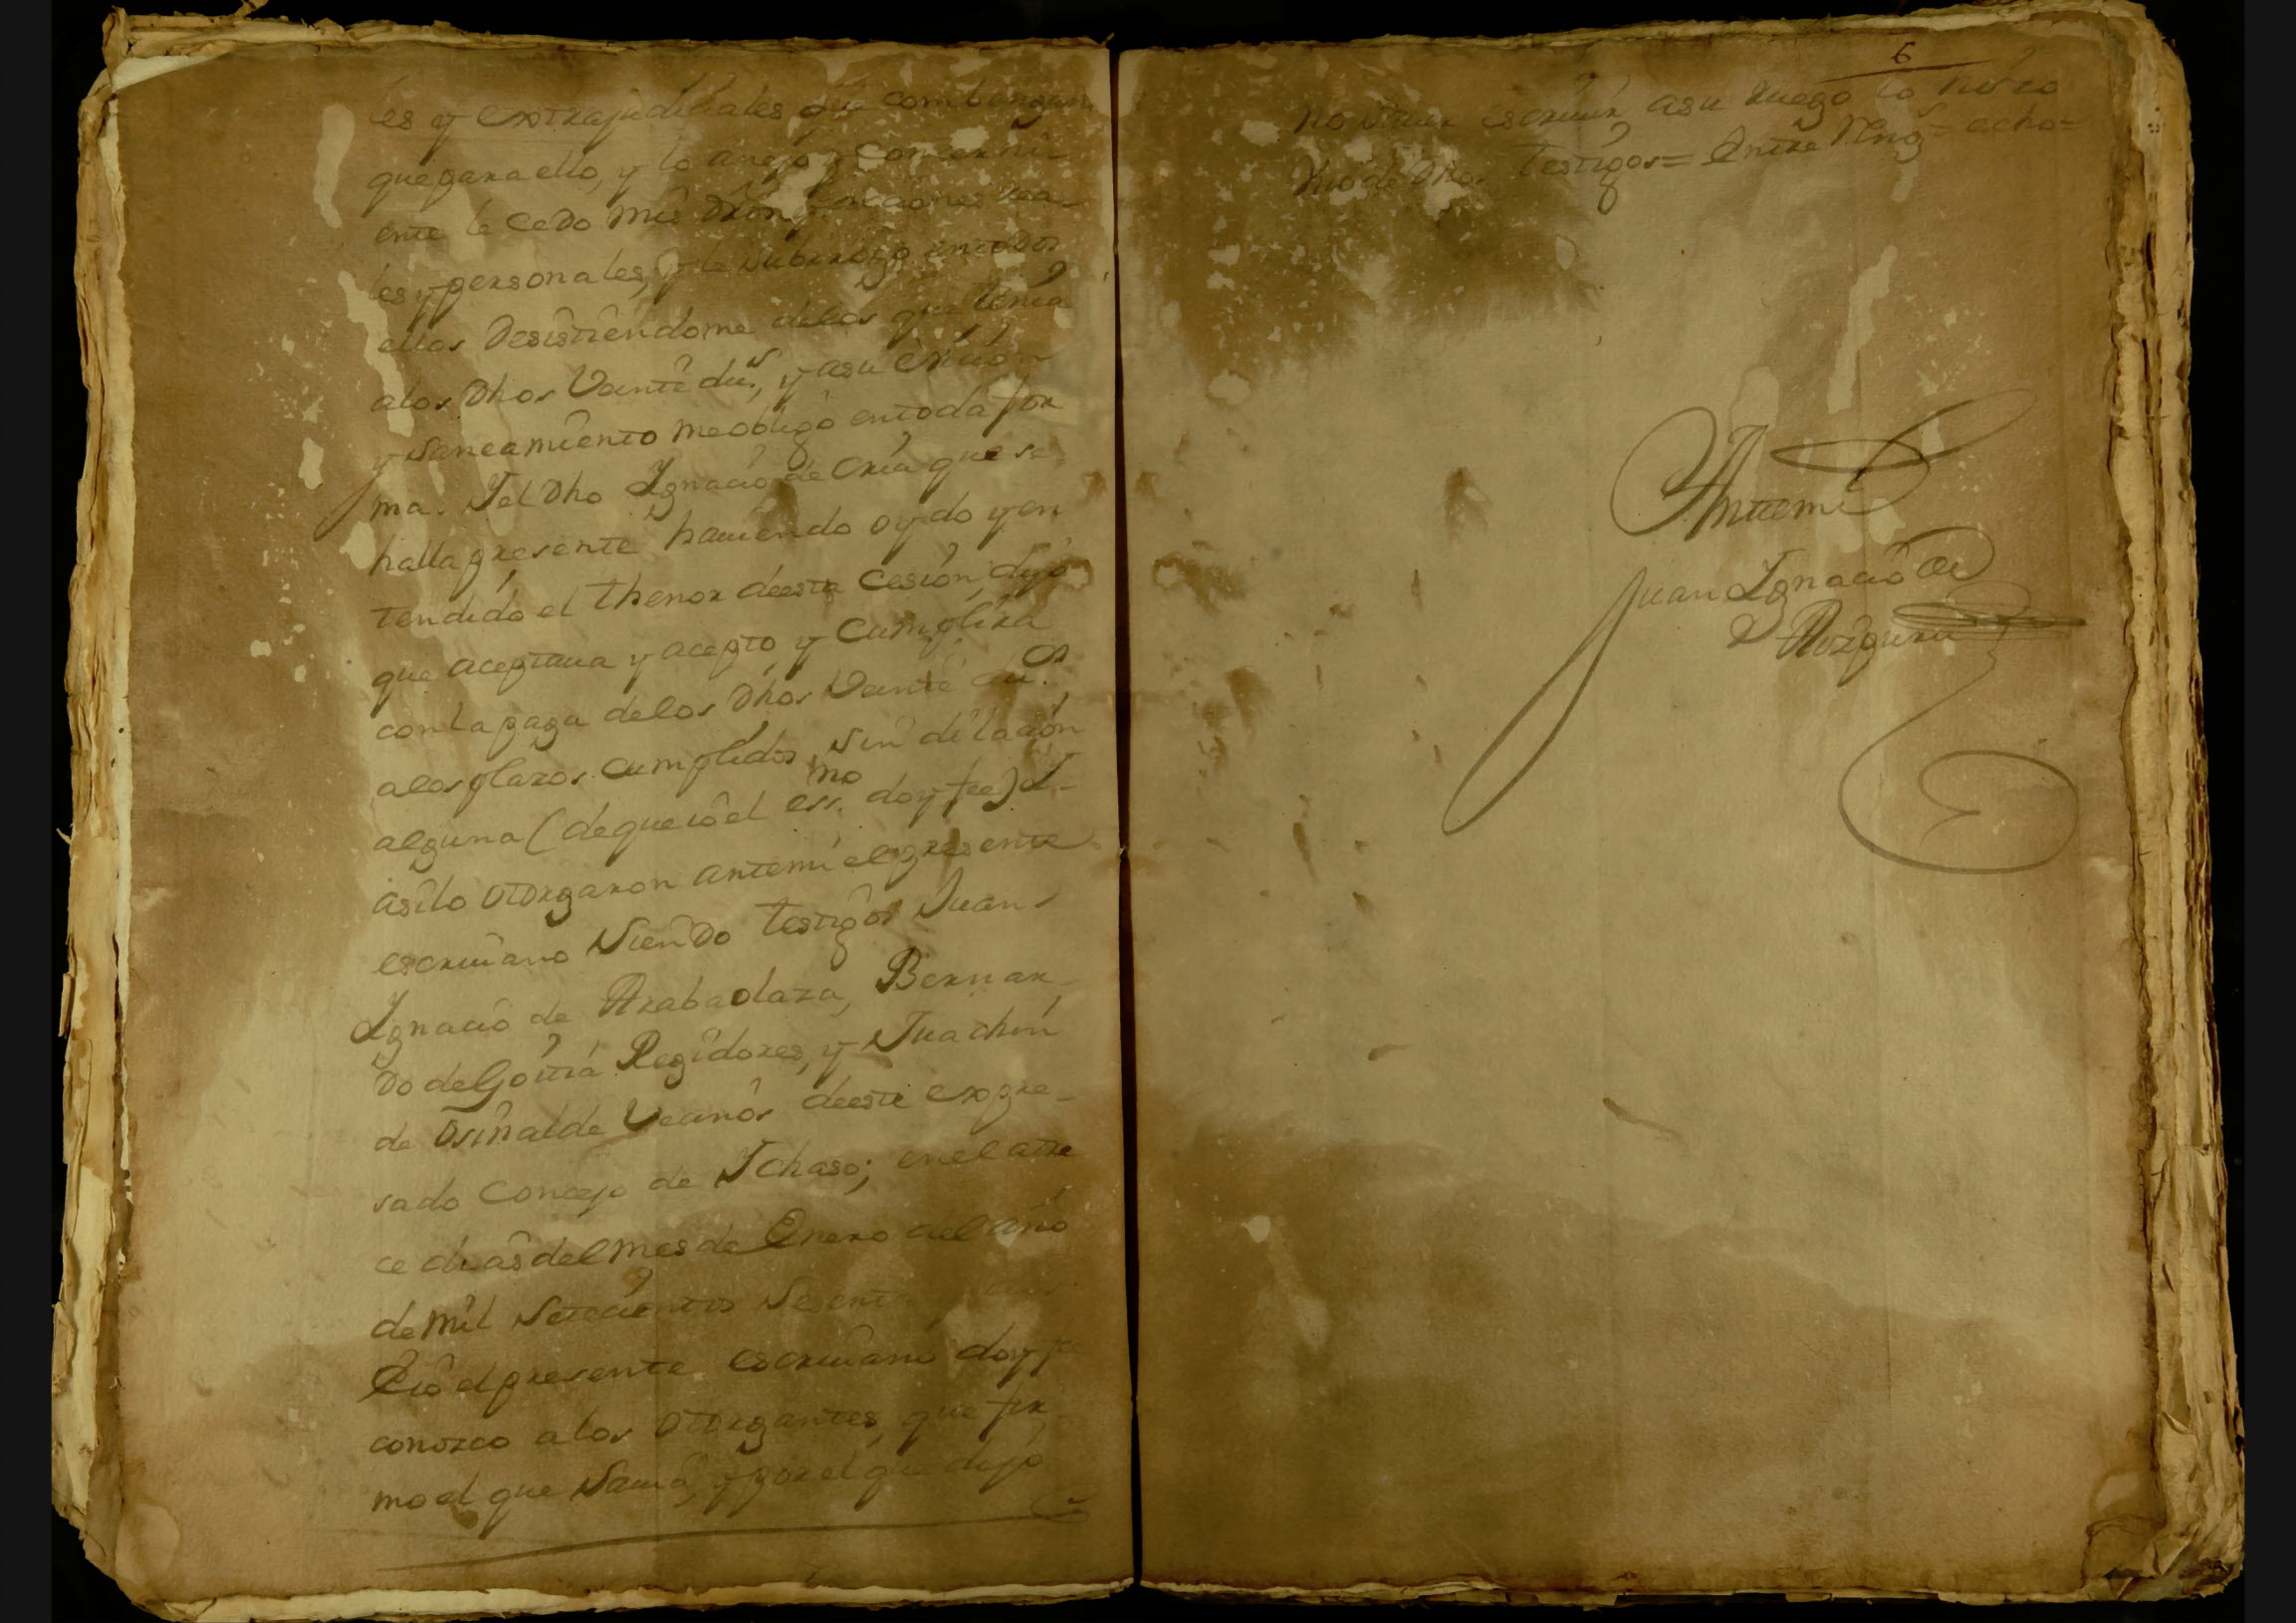 es y extrajudiciales que combengan
que para ello, y lo anejo y concerni-
ente le cedo mis dhōs y acciones rea-
les y personales, y le subrrogo en todos
ellos desistiendome de los que tenia
a los dhos Veinte du.s, y a su eviccion
y saneamiento me obligo en toda for
ma. Y el dho Ignacio de Oria que se
halla presente haviendo oydo y en
tendido el thenor de esta Cesion, dijo
que aceptava y acepto y Cumplira
con la paga de los dhos Veinte du.os
a los plazos cumplidos, sin dilacion
alguna (de que io el ess.no doy fee) I-
asi lo otorgaron antemi el presente
escrivano siendo testigos Juan
Ignacio de Arabaolaza, Bernar-
do de Goitia Regidores, y Juachin
de Osinalde Vecinos de este expre-
sado Concejo de Ichaso; en el a tre
ce dias del mes de Enero del año
de mil setecientos sesent
E io el presente escrivano doy fe
conozco a los otorgantes, que fir-
mo el que savia, y por el que dijo
6
no saver escrivir a su ruego lo hizo
Vno de dhos testigos= Entre Reng.s= echo=
Antemi
Juan Ignacio de